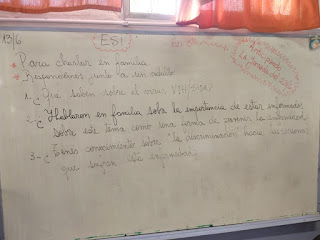 13/6
ESI
Para charlar en familia
Respondemos junto a un adulto
1- ¿Que saben sobre el virus VIH/sida?
2- ¿Hablaron en familia sobre la importancia de estar informados
sobre este tema como una forma de prevenir la enfermedad
3- ¿Tienes conocimiento sobre "la discriminación" hacia las personas
que sufren esta enfermedad?